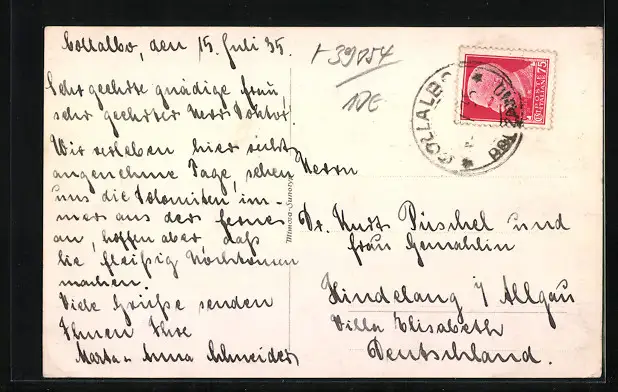 Collalbo, den 15. Juli 35.
Sehr geehrte gnädige Frau,
sehr geehrter Herr Doktor.
Wir verleben hier recht
angenehme Tage, sehen
uns die Dolomiten im-
mer aus der Ferne
an, hoffen aber, daß
Sie fleißig Hochtouren
machen.
Viele Grüße senden
Ihnen Ihre
Marta u. Anna Schneider
Mimosa-Sunotyp
+ 39054
COLLALBO
75
Herrn
Dr. Kurt Püschel und
Frau Gemahlin
Hindelang i/ Allgäu
Villa Elisabeth
Deutschland.